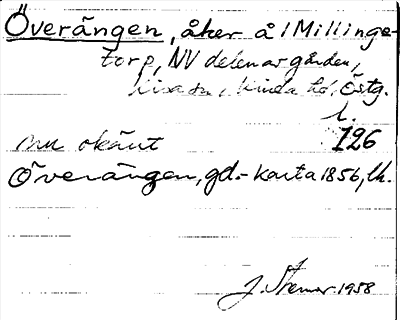 Överängen, åker å 1 Millinge-
torp, NV delen av gården,
Kisa sn, Kinda hd, Östg.
l.
126
nu okänt
Överängen, gd.- karta 1856, lk.
J. Stemar 1958